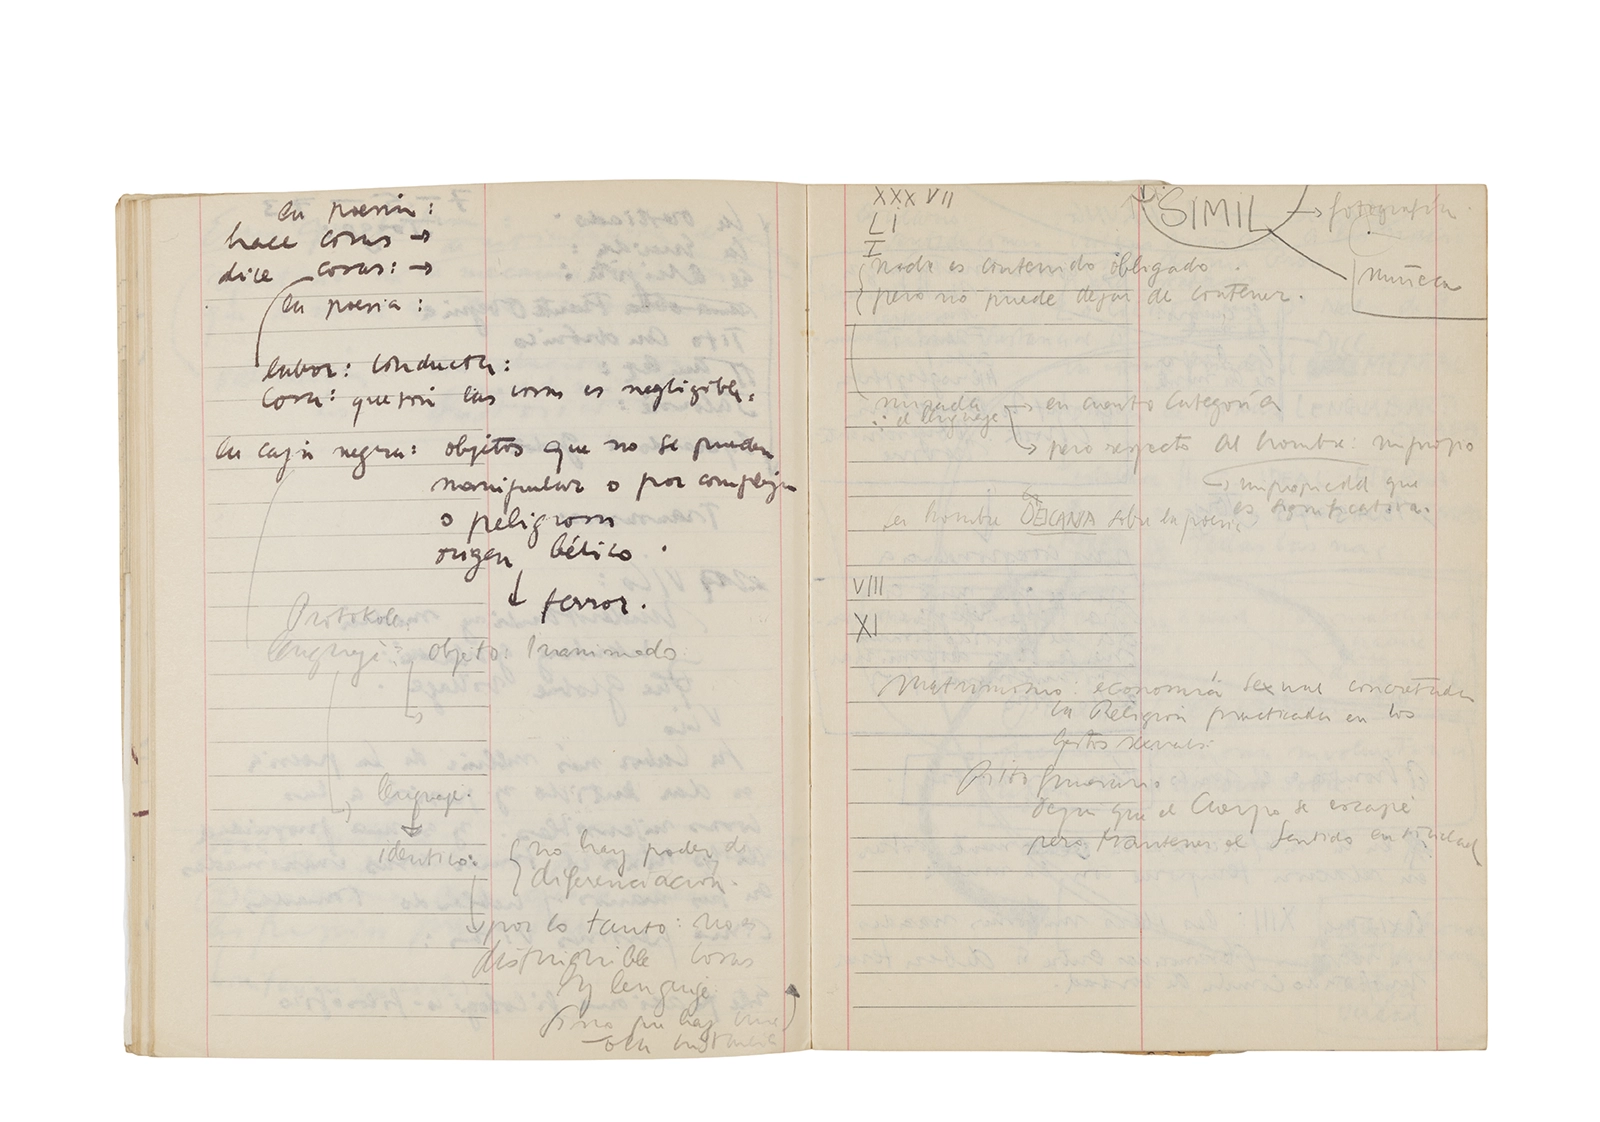 la poesía:
hace cosas →
dice cosas: →
la poesía:
labor: conducta:
cosa: que son las cosas es negligible.
la caja negra: objetos que no se pueden
manipular o por compleja
o peligrosa
origen bélico.
↓ terror.
Protokoler
lenguaje: objeto: Inanimado
lenguaje.
identico:
no hay poder de
diferenciación.
por lo tanto: no es
distinguible cosas
y lenguaje
Sino que hay una
sola
XXXVII
LI
I
SIMIL → fotografía
muñeca
nada es contenido obligado.
pero no puede dejar de contener.
mirada → en cuanto categoría
el lenguaje
→ pero respecto al hombre: impropio
impropiedad que
es significativa.
el hombre sobre la poesía
VIII
XI
Matrimonio: economía sexual concretada
la Religión practicada en los
gestos sexuales.
Rito funerario
dejar que el Cuerpo se escape
pero mantener el Sentido